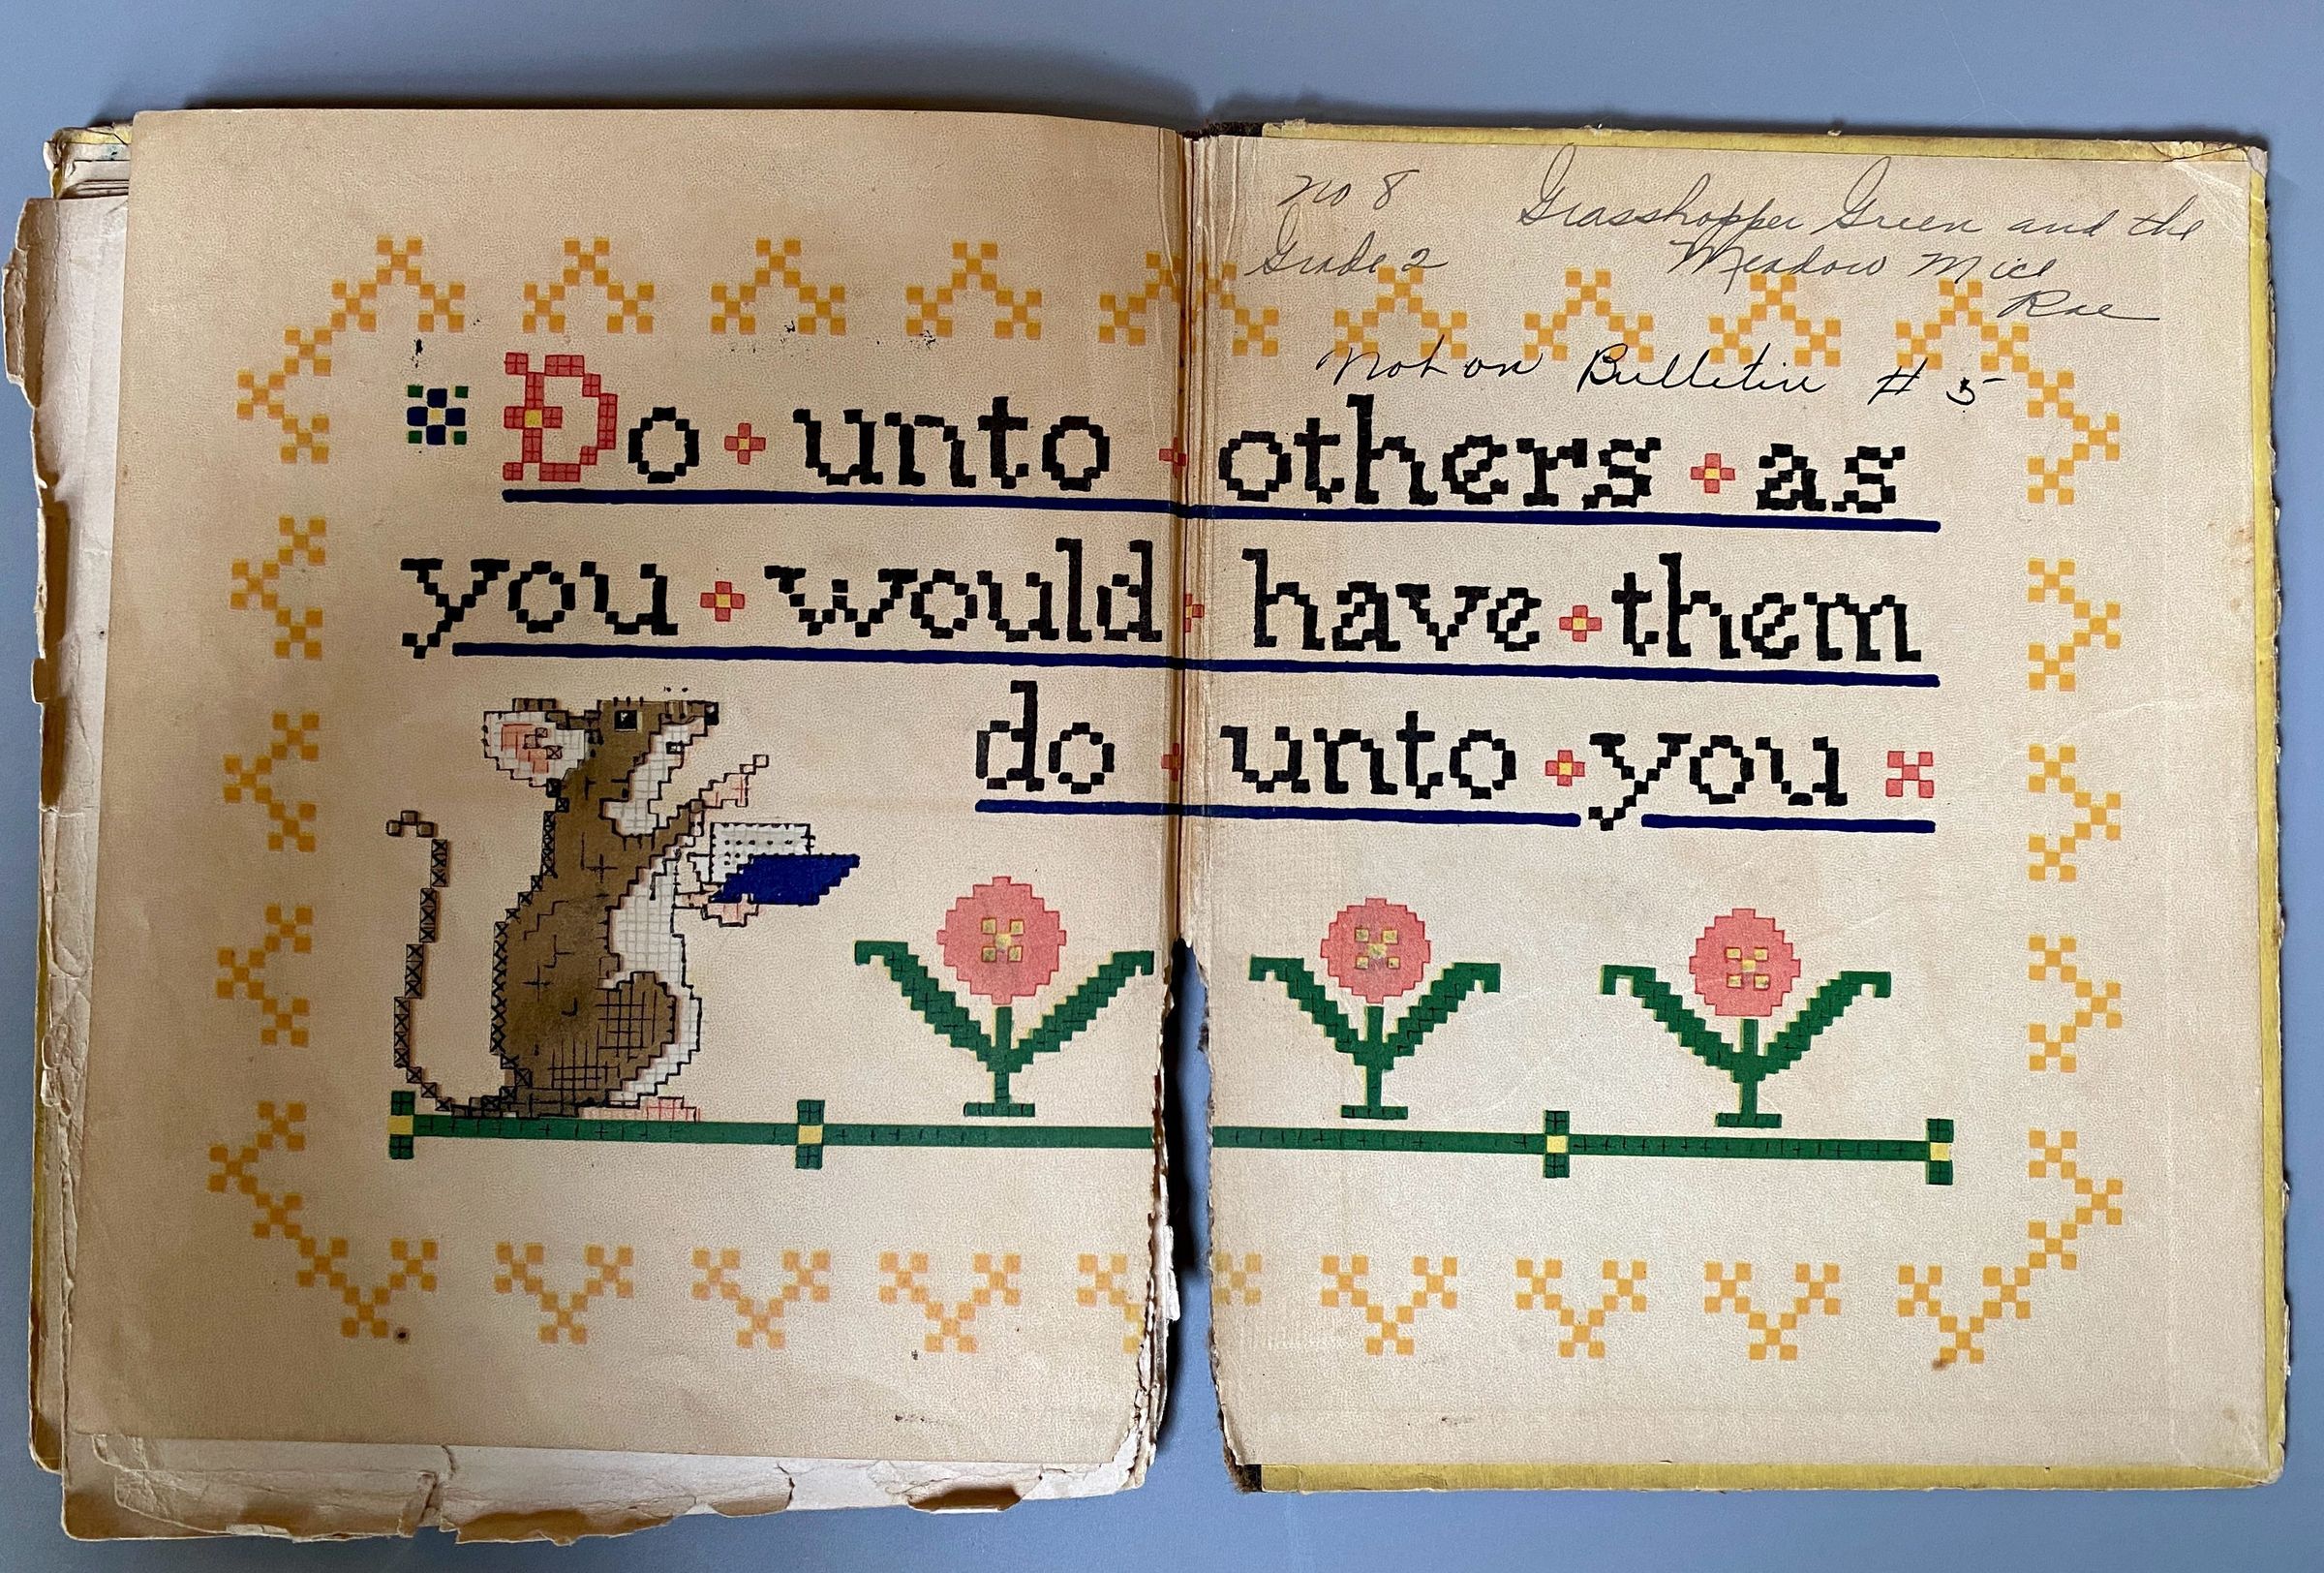 no 8
Grasshopper Green and the
Grade 2
Meadow Mice
Rae
Not on Bulletin # 5
Do unto others as
you would have them
do unto you